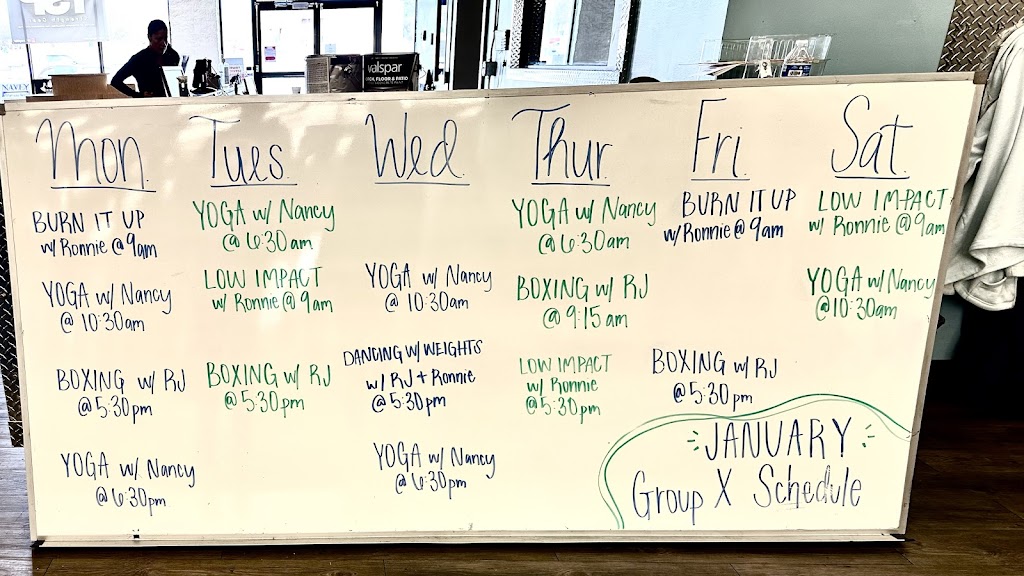 valspar
Mon.
Tues.
Wed.
Thur.
Fri.
Sat.
BURN IT UP
w/ Ronnie @ 9am
YOGA w/ Nancy
@ 10:30am
BOXING w/ RJ
@ 5:30 pm
YOGA w/ Nancy
@ 6:30pm
YOGA w/ Nancy
@ 6:30am
LOW IMPACT
w/ Ronnie @ 9am
BOXING w/ RJ
@ 5:30pm
YOGA w/ Nancy
@ 10:30am
DANCING w/ WEIGHTS
w/ RJ + Ronnie
@ 5:30pm
YOGA w/ Nancy
@ 6:30pm
YOGA w/ Nancy
@ 6:30am
BOXING w/ RJ
@ 9:15 am
LOW IMPACT
w/ Ronnie
@ 5:30pm
BURN IT UP
w/ Ronnie @ 9am
BOXING w/ RJ
@ 5:30 pm
LOW IMPACT
w/ Ronnie @ 9am
YOGA w/ Nancy
@ 10:30am
JANUARY
Group X Schedule